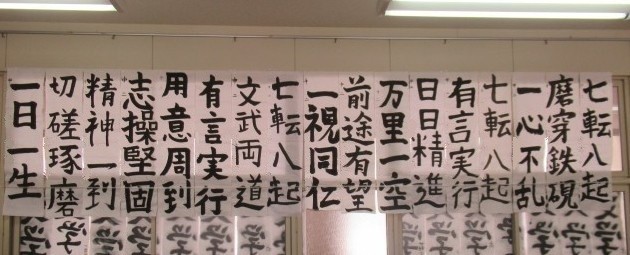 七転八起
磨穿鉄硯
一心不乱
七転八起
有言実行
日日精進
万里一空
前途有望
一視同仁
七転八起
文武両道
有言実行
用意周到
志操堅固
精神一到
切磋琢磨
一日一生